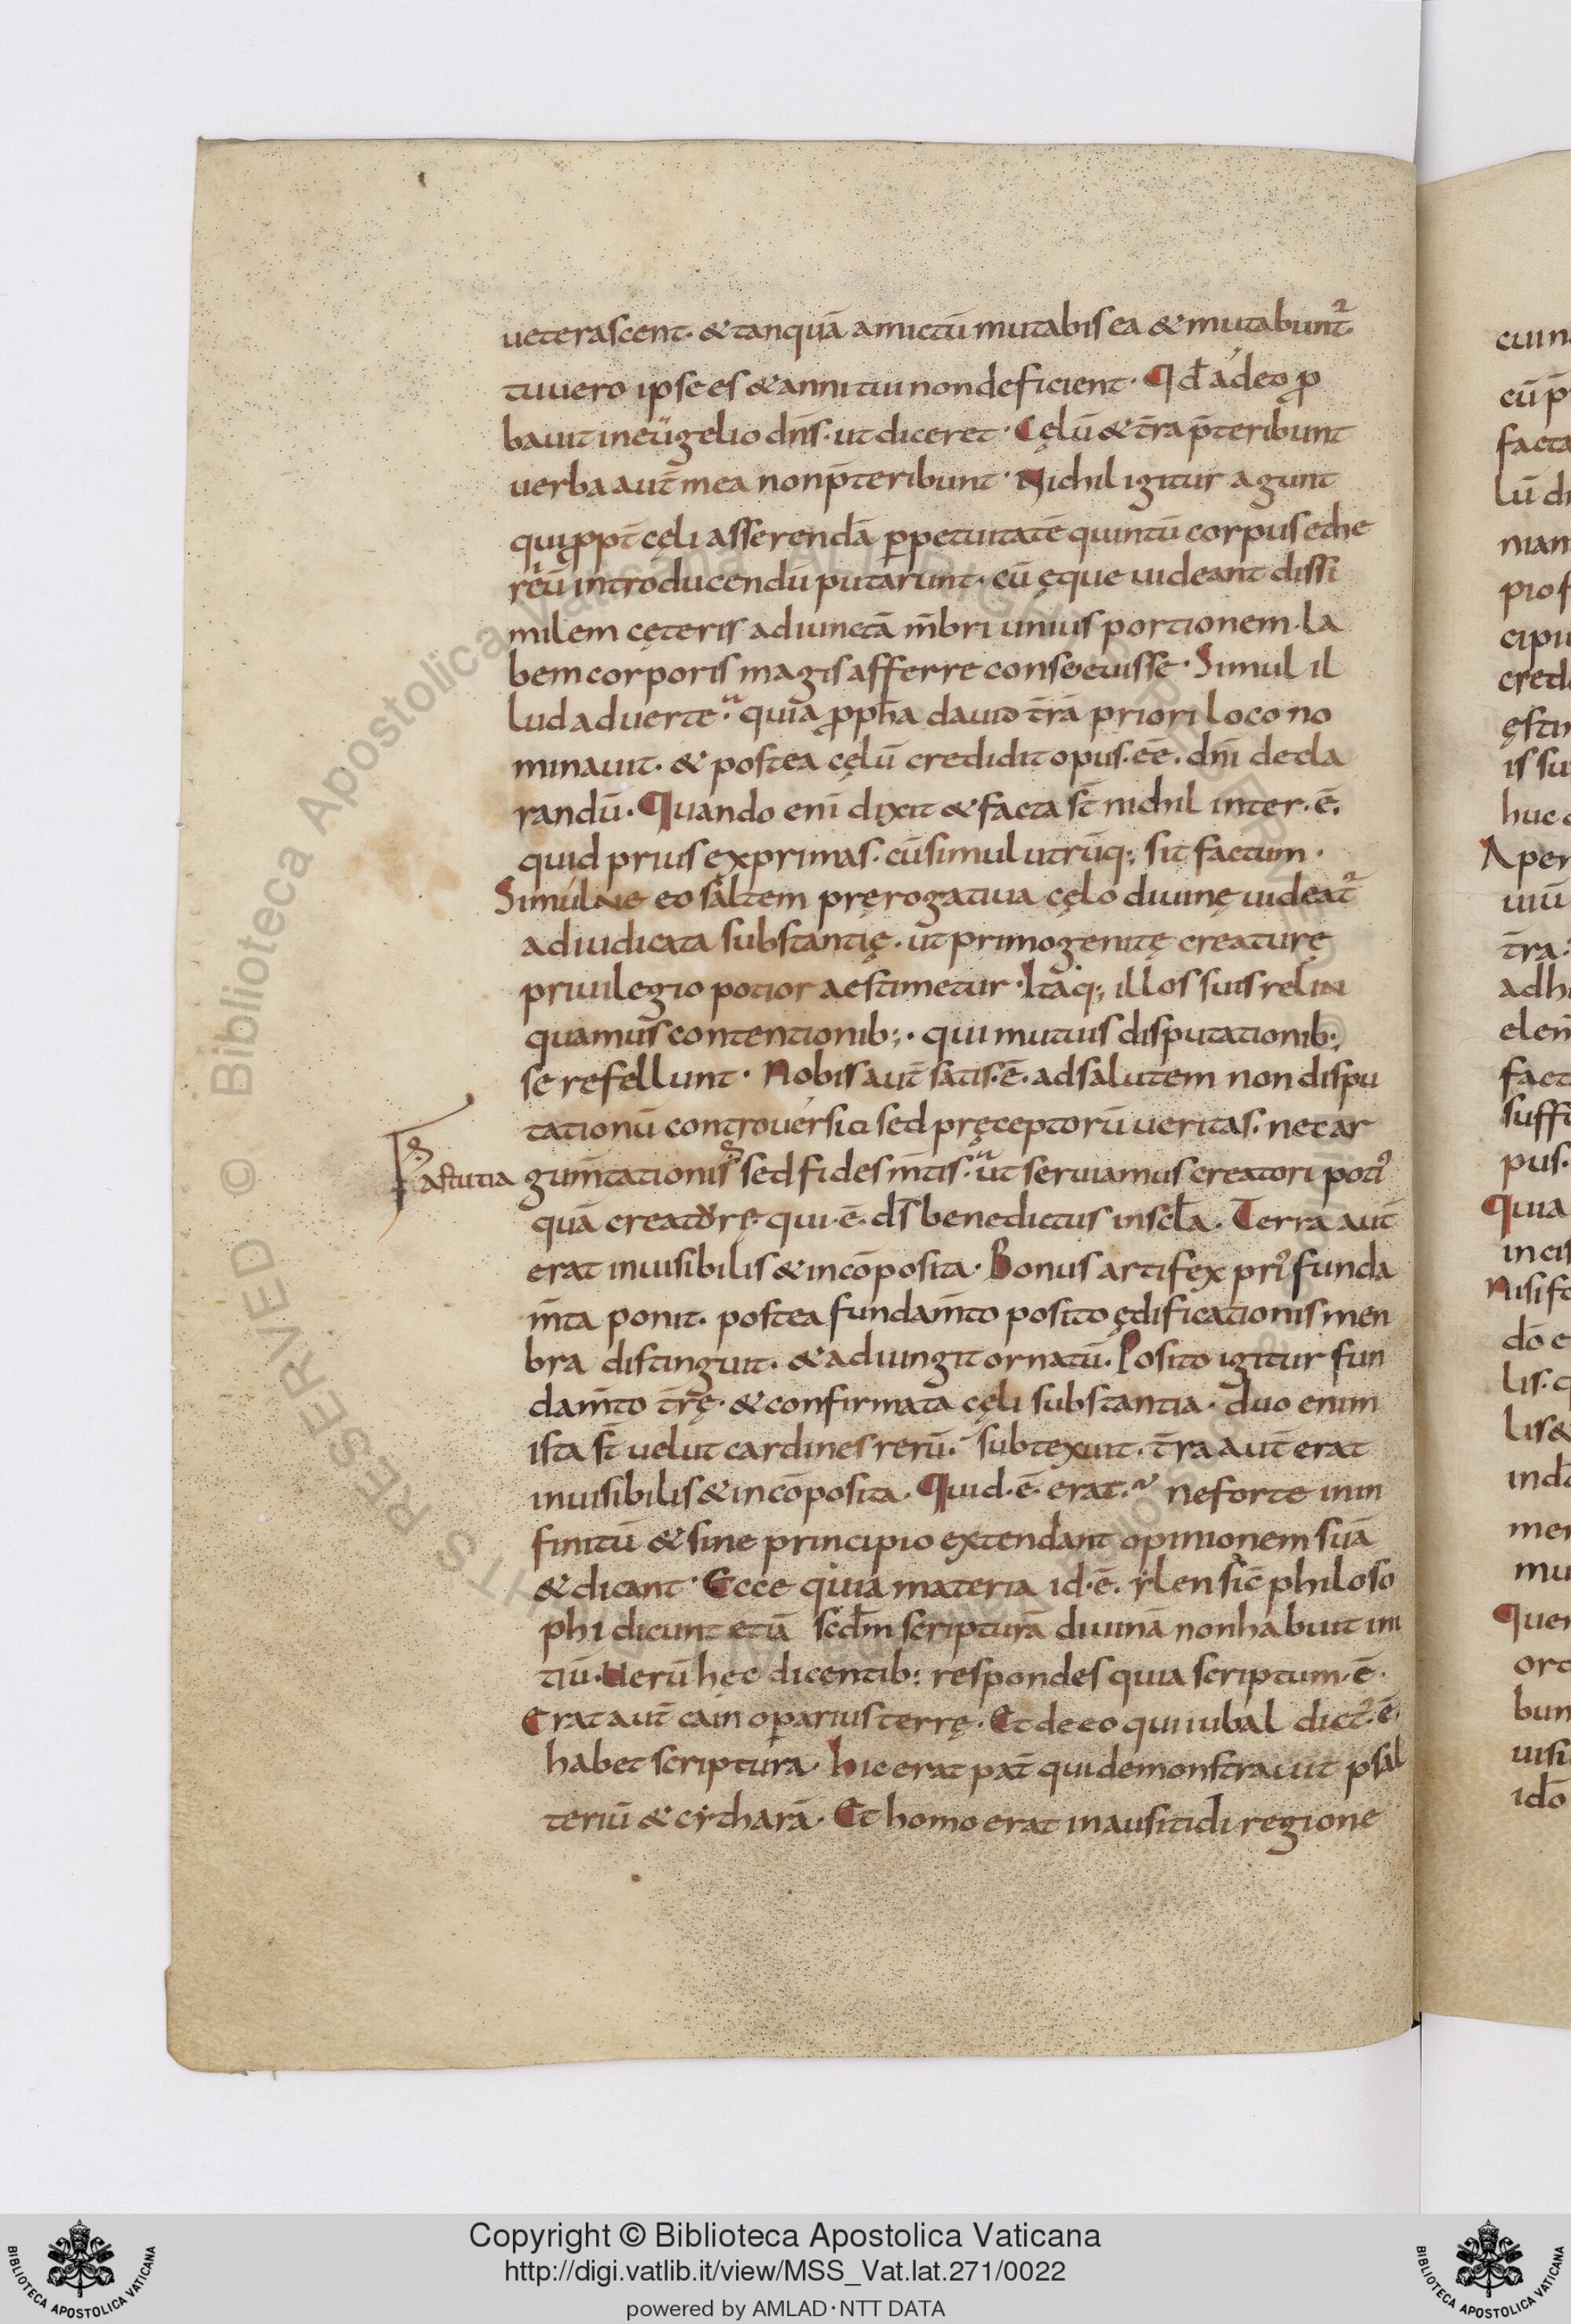 ueterascent· & tanquā amictū mutabis ea & mutabunt᷑·
tu uero ipse es & anni tui non deficient· Qđ adeo ꝓ
bauit in euğgelio dn̄s· ut diceret· Cęlū & t̄ra p̄teribunt
uerba aut̄ mea non p̄teribunt· Nichil igitur agunt
qui ꝓpt̄ cęli asserendā ꝑpetuitatē quintū corpus ethe
reū introducendū putarunt· cū ęque uideant dissi
milem cęteris adiunctā m̄bri unius portionem· la
bem corporis magis afferre consueuisse· Simul il
lud aduerte· quia ꝓpħa dauid t̄rā priori loco no
minauit· & postea cęlū credidit opus· eē· dn̄i decla
randū· Quando eni̅ dixit & facta st̄ nichil inter· ē·
quid prius exprimas· cū simul utrūq; sit factum·
Simul ne eo saltem pręrogatiua cęlo diuinę uideat᷑
adiudicata substantię· ut primogenitę creaturę
priuilegio potior aestimetur· Itaq; illos suis relin
quamus contentionib;· qui mutuis disputationib;
se refellunt· Nobis aut̄ satis· ē· ad salutem non dispu
tationū controuersia sed pręceptorū ueritas· nec ar
astutia
gum̄tationis sed fides m̄tis· ut seruiamus creatori poti᷒
quā creaturę· qui· ē· ds̄ benedictus in scl̄a· Terra aut̄
erat inuisibilis & incōposita· Bonus artifex pri᷒ funda
m̄ta ponit· postea fundam̄to posito ędificationis men
bra distinguit· & adiungit ornatū· Posito igitur fun
dam̄to t̄rę· & confirmata cęli substantia· duo enim
ista st̄ uelut cardines rerū· subtexuit· t̄ra aut̄ erat
inuisibilis & incōposita· Quid· ē· erat· ne forte in in
finitū & sine principio extendant opinionem suā
& dicant· Ecce quia materia id· ē· ylen sic̄ philoso
phi dicunt etiā scdm̄ scripturā diuinā non habuit ini
tiū· Uerū hęc dicentib: respondes quia scriptum· ē·
Erat aut̄ cain oꝑarius terrę· Et de eo qui iubal dict᷒· ē·
habet scriptura· hic erat pat̄ qui demonstrauit psal
teriū & cytharā· Et homo erat in ausitidi regione
cui n
cū p̄
facta
lū di
niam
pio f
cipiu
cred
ęstim
is su
huc
Aper
uiū
t̄ra·
adh
elem̄
fact
suffi
pus·
Quia
in cis
Nisi fo
dō e
lis· q
lis &
ind
mer
mu
Quer
orc
bun
uisi
idō
Bibliotheca Apostolica Vaticana
Copyright © Biblioteca Apostolica Vaticana
http://digi.vatlib.it/view/MSS_Vat.lat.271/0022
powered by AMLAD·NTT DATA